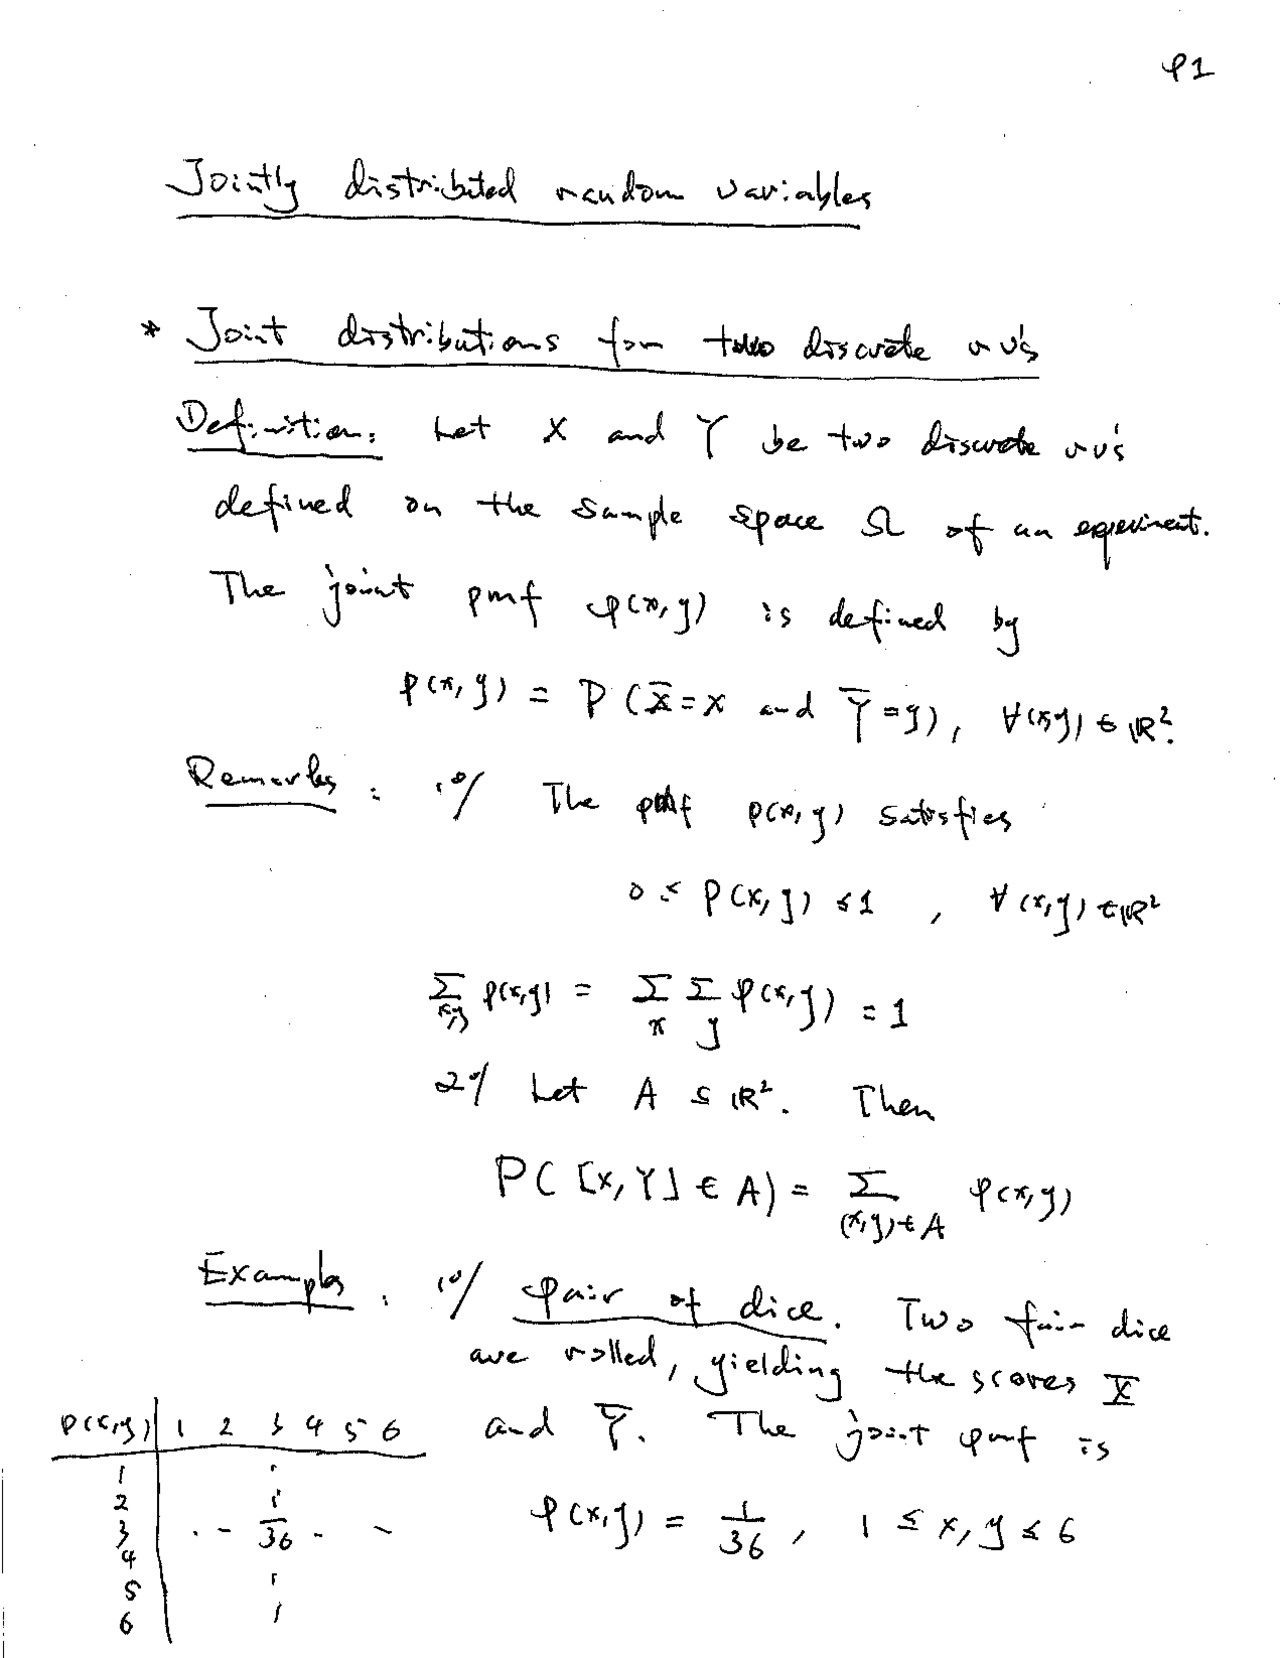 p1
Jointly distributed random variables
* Joint distributions for two discrete rv's
Definition: Let X and Y be two discrete rv's
defined on the sample space Ω of an experiment.
The joint pmf p(x,y) is defined by
p(x,y) = P(X=x and Y=y), ∀(x,y) ∈ ℝ².
Remarks: 1°/ The pmf p(x,y) satisfies
0 ≤ p(x,y) ≤ 1 , ∀(x,y) ∈ ℝ²
∑_{x,y} p(x,y) = ∑_x ∑_y p(x,y) = 1
2°/ Let A ⊆ ℝ². Then
P([X,Y] ∈ A) = ∑_{(x,y)∈A} p(x,y)
Examples: 1°/ pair of dice. Two fair dice
are rolled, yielding the scores X
and Y. The joint pmf is
p(x,y) = 1/36, 1 ≤ x, y ≤ 6
p(x,y) 1 2 3 4 5 6
1
2
3 1/36
4
5
6